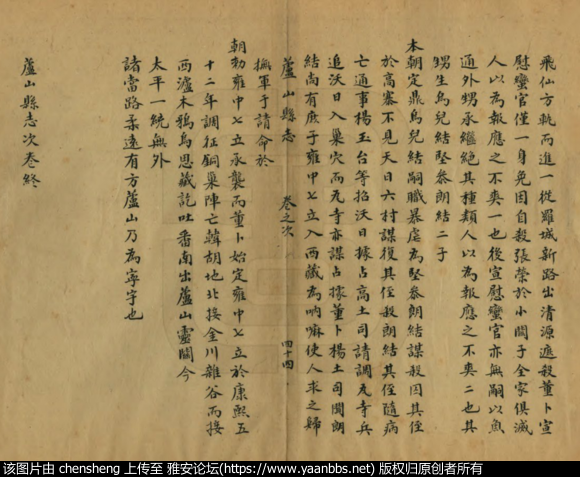 飛仙方軌而進一從羅城新路出清源遮殺董卜宣
慰蠻官僅一身免因自殺張榮於小關子全家俱滅
人以為報應之不爽一也後宣慰蠻官亦無嗣以魚
通外甥承繼絕其種類人以為報應之不爽二也其
甥生鳥兒結堅叅朗結二子
本朝定鼎鳥兒結嗣職暴虐為堅叅朗結謀殺因其侄
於高寨不見天日六村謀復其侄殺朗結其侄隨病
亡通事楊玉台等招沃日據占高土司請調瓦寺兵
追沃日入巢穴而瓦寺亦謀占據董卜楊土司聞朗
結尚有庶子雍中七立入西藏為喇嘛使人求之歸
蘆山縣志 卷之次 四十四
撫軍于請命於
朝勅雍中七立承襲而董卜始定雍中七立於康熙五
十二年調征銅巢陣亡韓胡地北接金川雜谷而接
西瀘木鴉烏思藏訖吐番南出蘆山靈關今
太平一統無外
諸當路柔遠有方蘆山乃為寧宇也
蘆山縣志次卷終
该图片由 chensheng 上传至 雅安论坛(https://www.yaanbbs.net) 版权归原创者所有